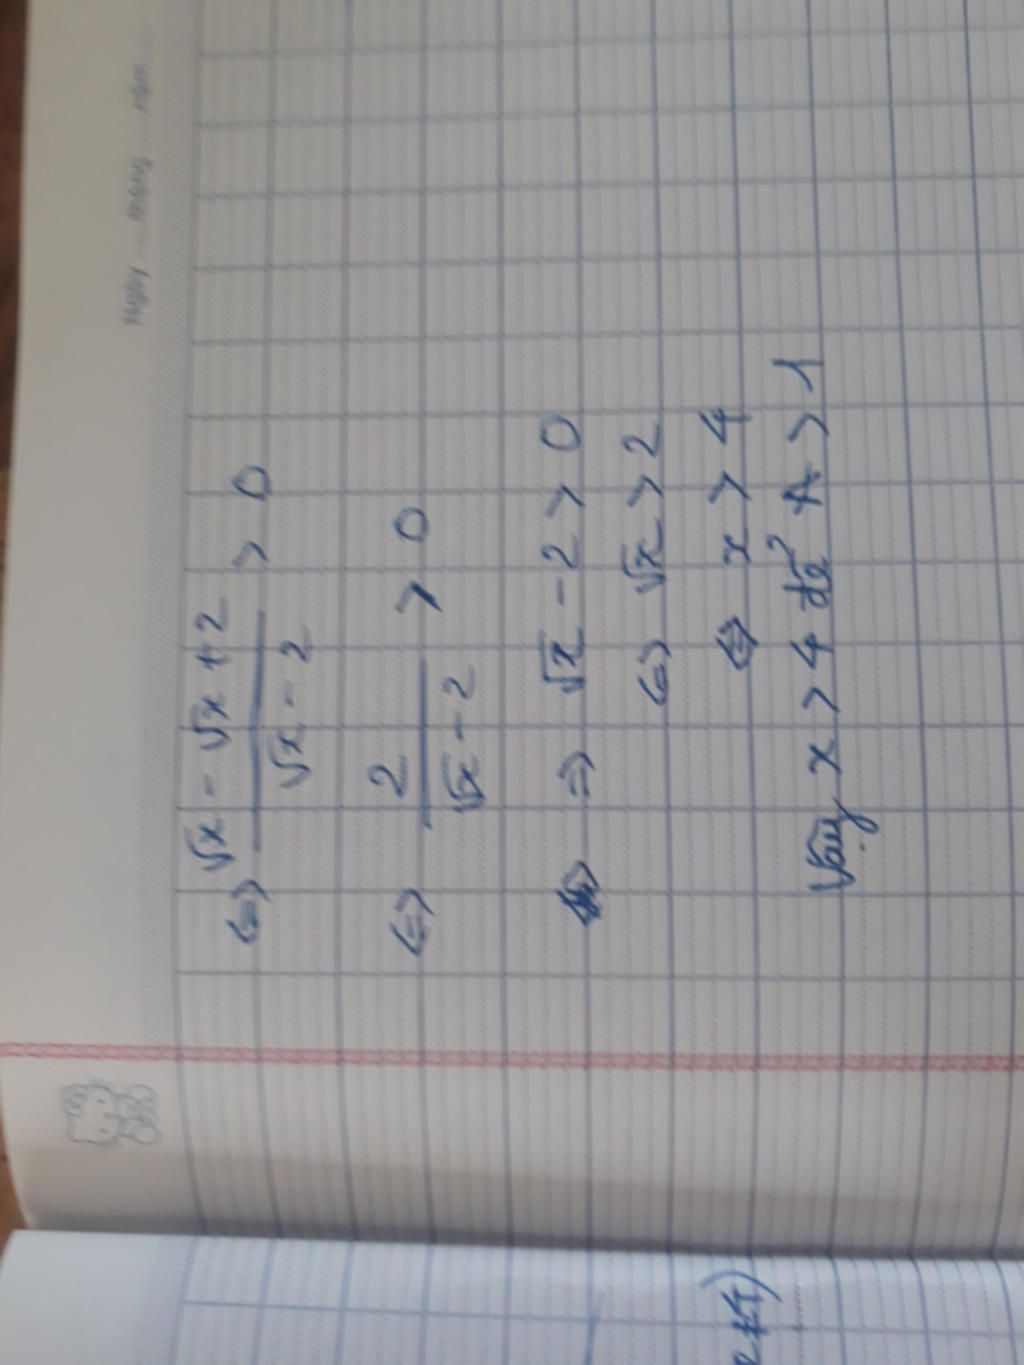 Ngày ..... tháng ..... năm .....
(=) √x - √x + 2 / √x - 2 > 0
(=) 2 / √x - 2 > 0
=) √x - 2 > 0
(=) √x > 2
(=) x > 4
Vậy x > 4 để A > 1